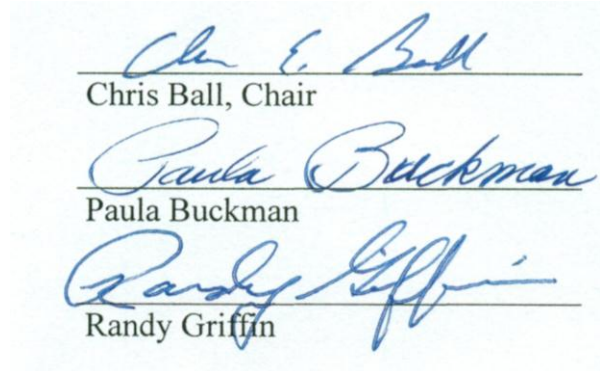 Chris E. Ball
Chris Ball, Chair
Paula Buckman
Paula Buckman
Randy Griffin
Randy Griffin